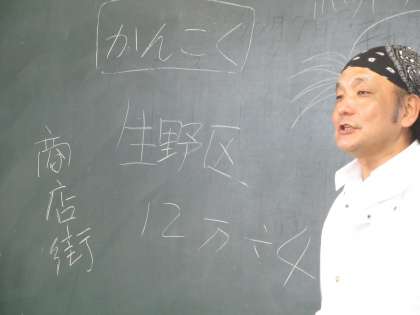 かんこく
生野区
12万÷4
商店街